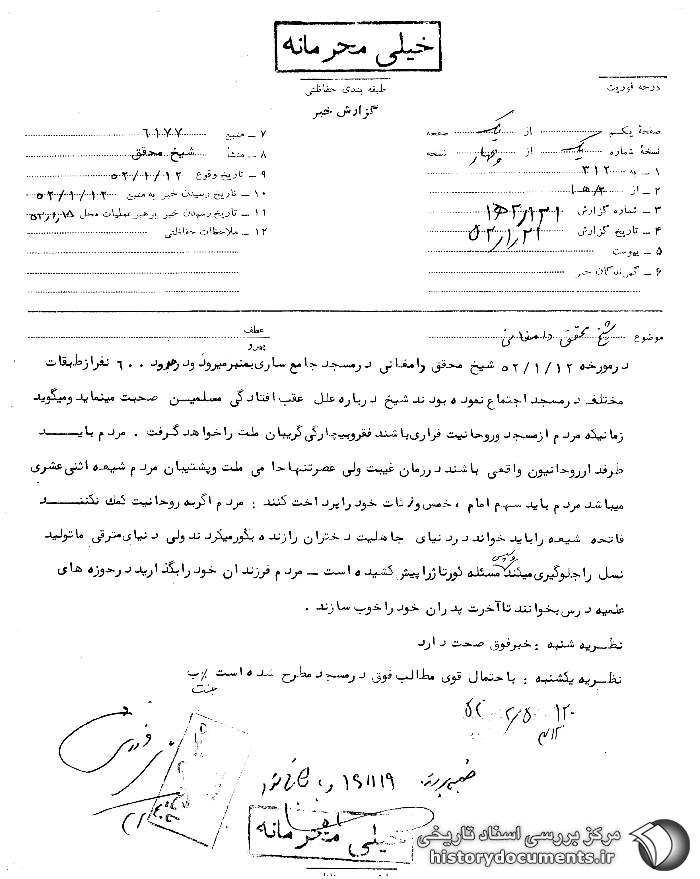 خیلی محرمانه
طبقه بندی حفاظتی
گزارش خبر
درجه فوریت
صفحه یکم از یک صفحه
نسخه شماره یک از چهار نسخه
۱ ـ به ۳۱۲
۲ ـ از
۳ ـ شماره گزارش
۴ ـ تاریخ گزارش ۵۲/۱/۲۱
۵ ـ پیوست
۶ ـ گیرندگان خبر
۷ ـ منبع ۶۱۷۷
۸ ـ منشأ شیخ محقق
۹ ـ تاریخ وقوع ۵۲/۱/۱۲
۱۰ ـ تاریخ رسیدن خبر به منبع ۵۲/۱/۱۲
۱۱ ـ تاریخ رسیدن خبر برهبر عملیات محل
۱۲ ـ ملاحظات حفاظتی
موضوع شیخ محقق دامغانی
عطف
پیرو
درمورخه ۵۲/۱/۱۲ شیخ محقق دامغانی درمسجد جامع ساری بمنبرمیرود ودرحدود ۶۰۰ نفرازطبقات
مختلف درمسجد اجتماع نموده بودند شیخ درباره علل عقب افتادگی مسلمین صحبت مینماید ومیگوید
زمانیکه مردم ازمسجد وروحانیت فراری باشند فقروبیچارگی گریبان ملت راخواهد گرفت . مردم باید
طرفدارروحانیون واقعی باشند درزمان غیبت ولی عصرتنها حامی ملت وپشتیبان مردم شیعه اثنی عشری
میباشد مردم باید سهم امام ، خمس وزکات خود راپرداخت کنند : مردم اگربه روحانیت کمک نکنند
فاتحه شیعه راباید خواند دردنیای جاهلیت دختران رازنده بگورمیکردند ولی دنیای مترقی ماتولید
نسل راجلوگیری میکند وسپس مسئله کورتاژراپیش کشیده است ـ مردم فرزندان خود رابگذارید درحوزه های
علمیه درس بخوانند تاآخرت پدران خود راخوب سازند .
نظریه شنبه : خبرفوق صحت دارد
نظریه یکشنبه : باحتمال قوی مطالب فوق درمسجد مطرح شده است
خیلی محرمانه
مرکز بررسی اسناد تاریخی
historydocuments.ir